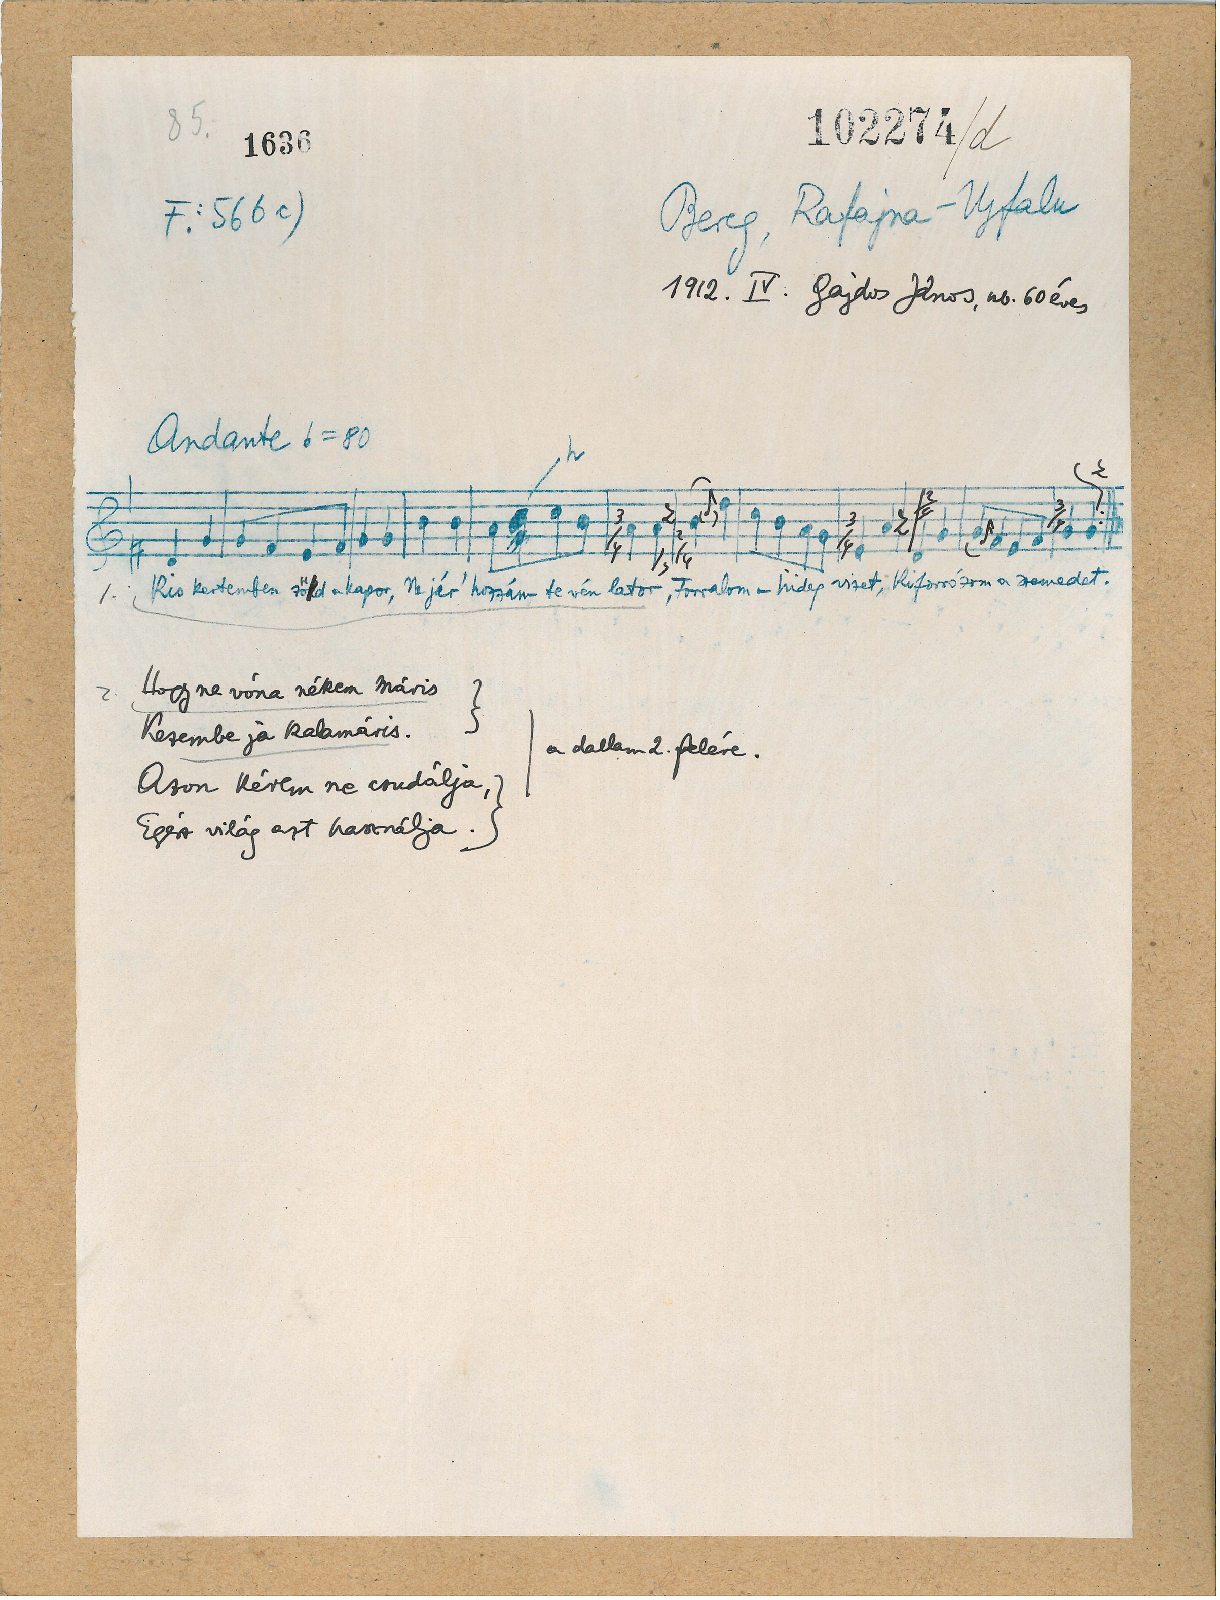 85.
1636
102274/d
F.: 566 c)
Bereg, Rafajna-Ujfalu
1912. IV. Gajdos János, 60 éves
Andante = 80
1. Kis kertemben zöld a kapor, Ne jár' hozzám te vén lator, Forralom a hideg vizet, Kiforrózom a szemedet.
2. Hogy ne vóna nékem máris
Kezembe ja kalamáris.
a dallam 2. felére.
Ason kérem ne csudálja,
Egész világ azt használja.